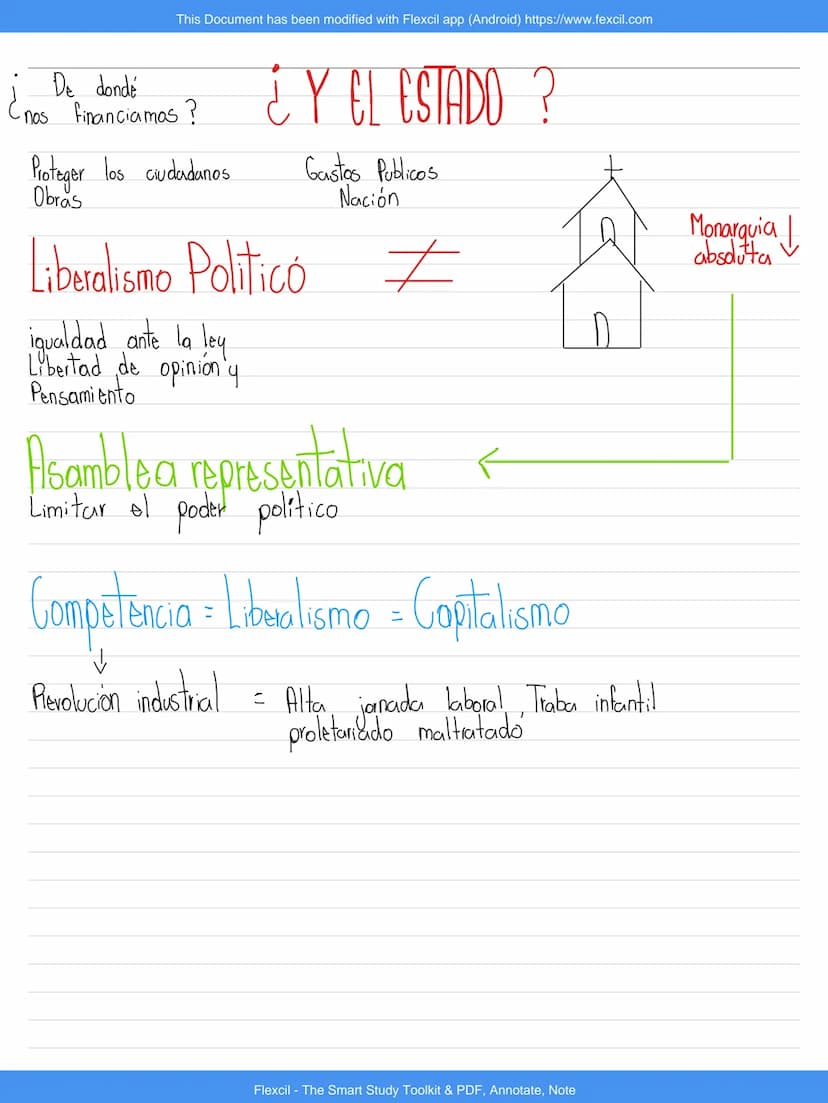 This Document has been modified with Flexcil app (Android) https://www.fexcil.com
¿ De dondé
nos financiamos ?
¿ Y EL ESTADO ?
Proteger los ciudadanos
Obras
Gastos Publicos
Nación
Monarquia ↓
absoluta
Liberalismo Politicó ≠
igualdad ante la ley
Libertad de opinión y
Pensamiento
Asamblea representativa
←
Limitar el poder político
Competencia = Liberalismo = Capitalismo
↓
Revolución industrial = Alta jornada laboral, Traba infantil
proletariado maltratado
Flexcil - The Smart Study Toolkit & PDF, Annotate, Note